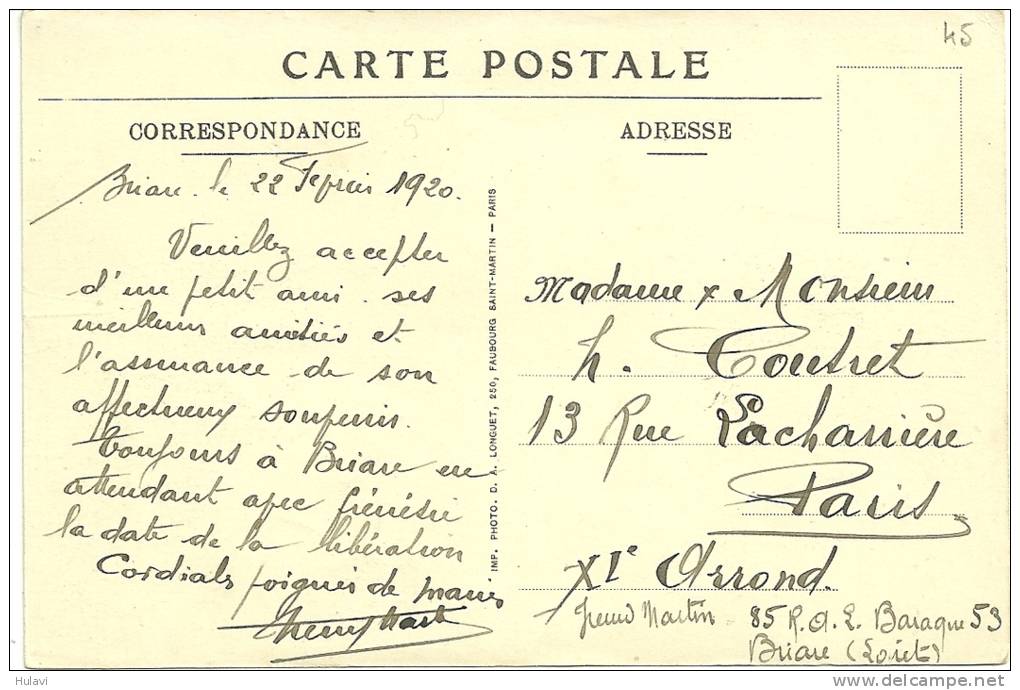 45
CARTE POSTALE
CORRESPONDANCE
ADRESSE
Briare le 22 Février 1920.
Veuillez accepter
d'un petit ami ses
meilleurs amitiés et
l'assurance de son
affectueux souvenir.
Toujours à Briare en
attendant avec frénésie
la date de la libération
Cordiales poignés de mains
IMP. PHOTO. D. A. LONGUET, 250, FAUBOURG SAINT-MARTIN — PARIS
Madame & Monsieur
h. Coutret
13 Rue Lacharrière
Paris
XIe Arrond.
Martin 85 R.A.L. Baraque 53
Briare (Loiret)
Hulavi
delcampe.net